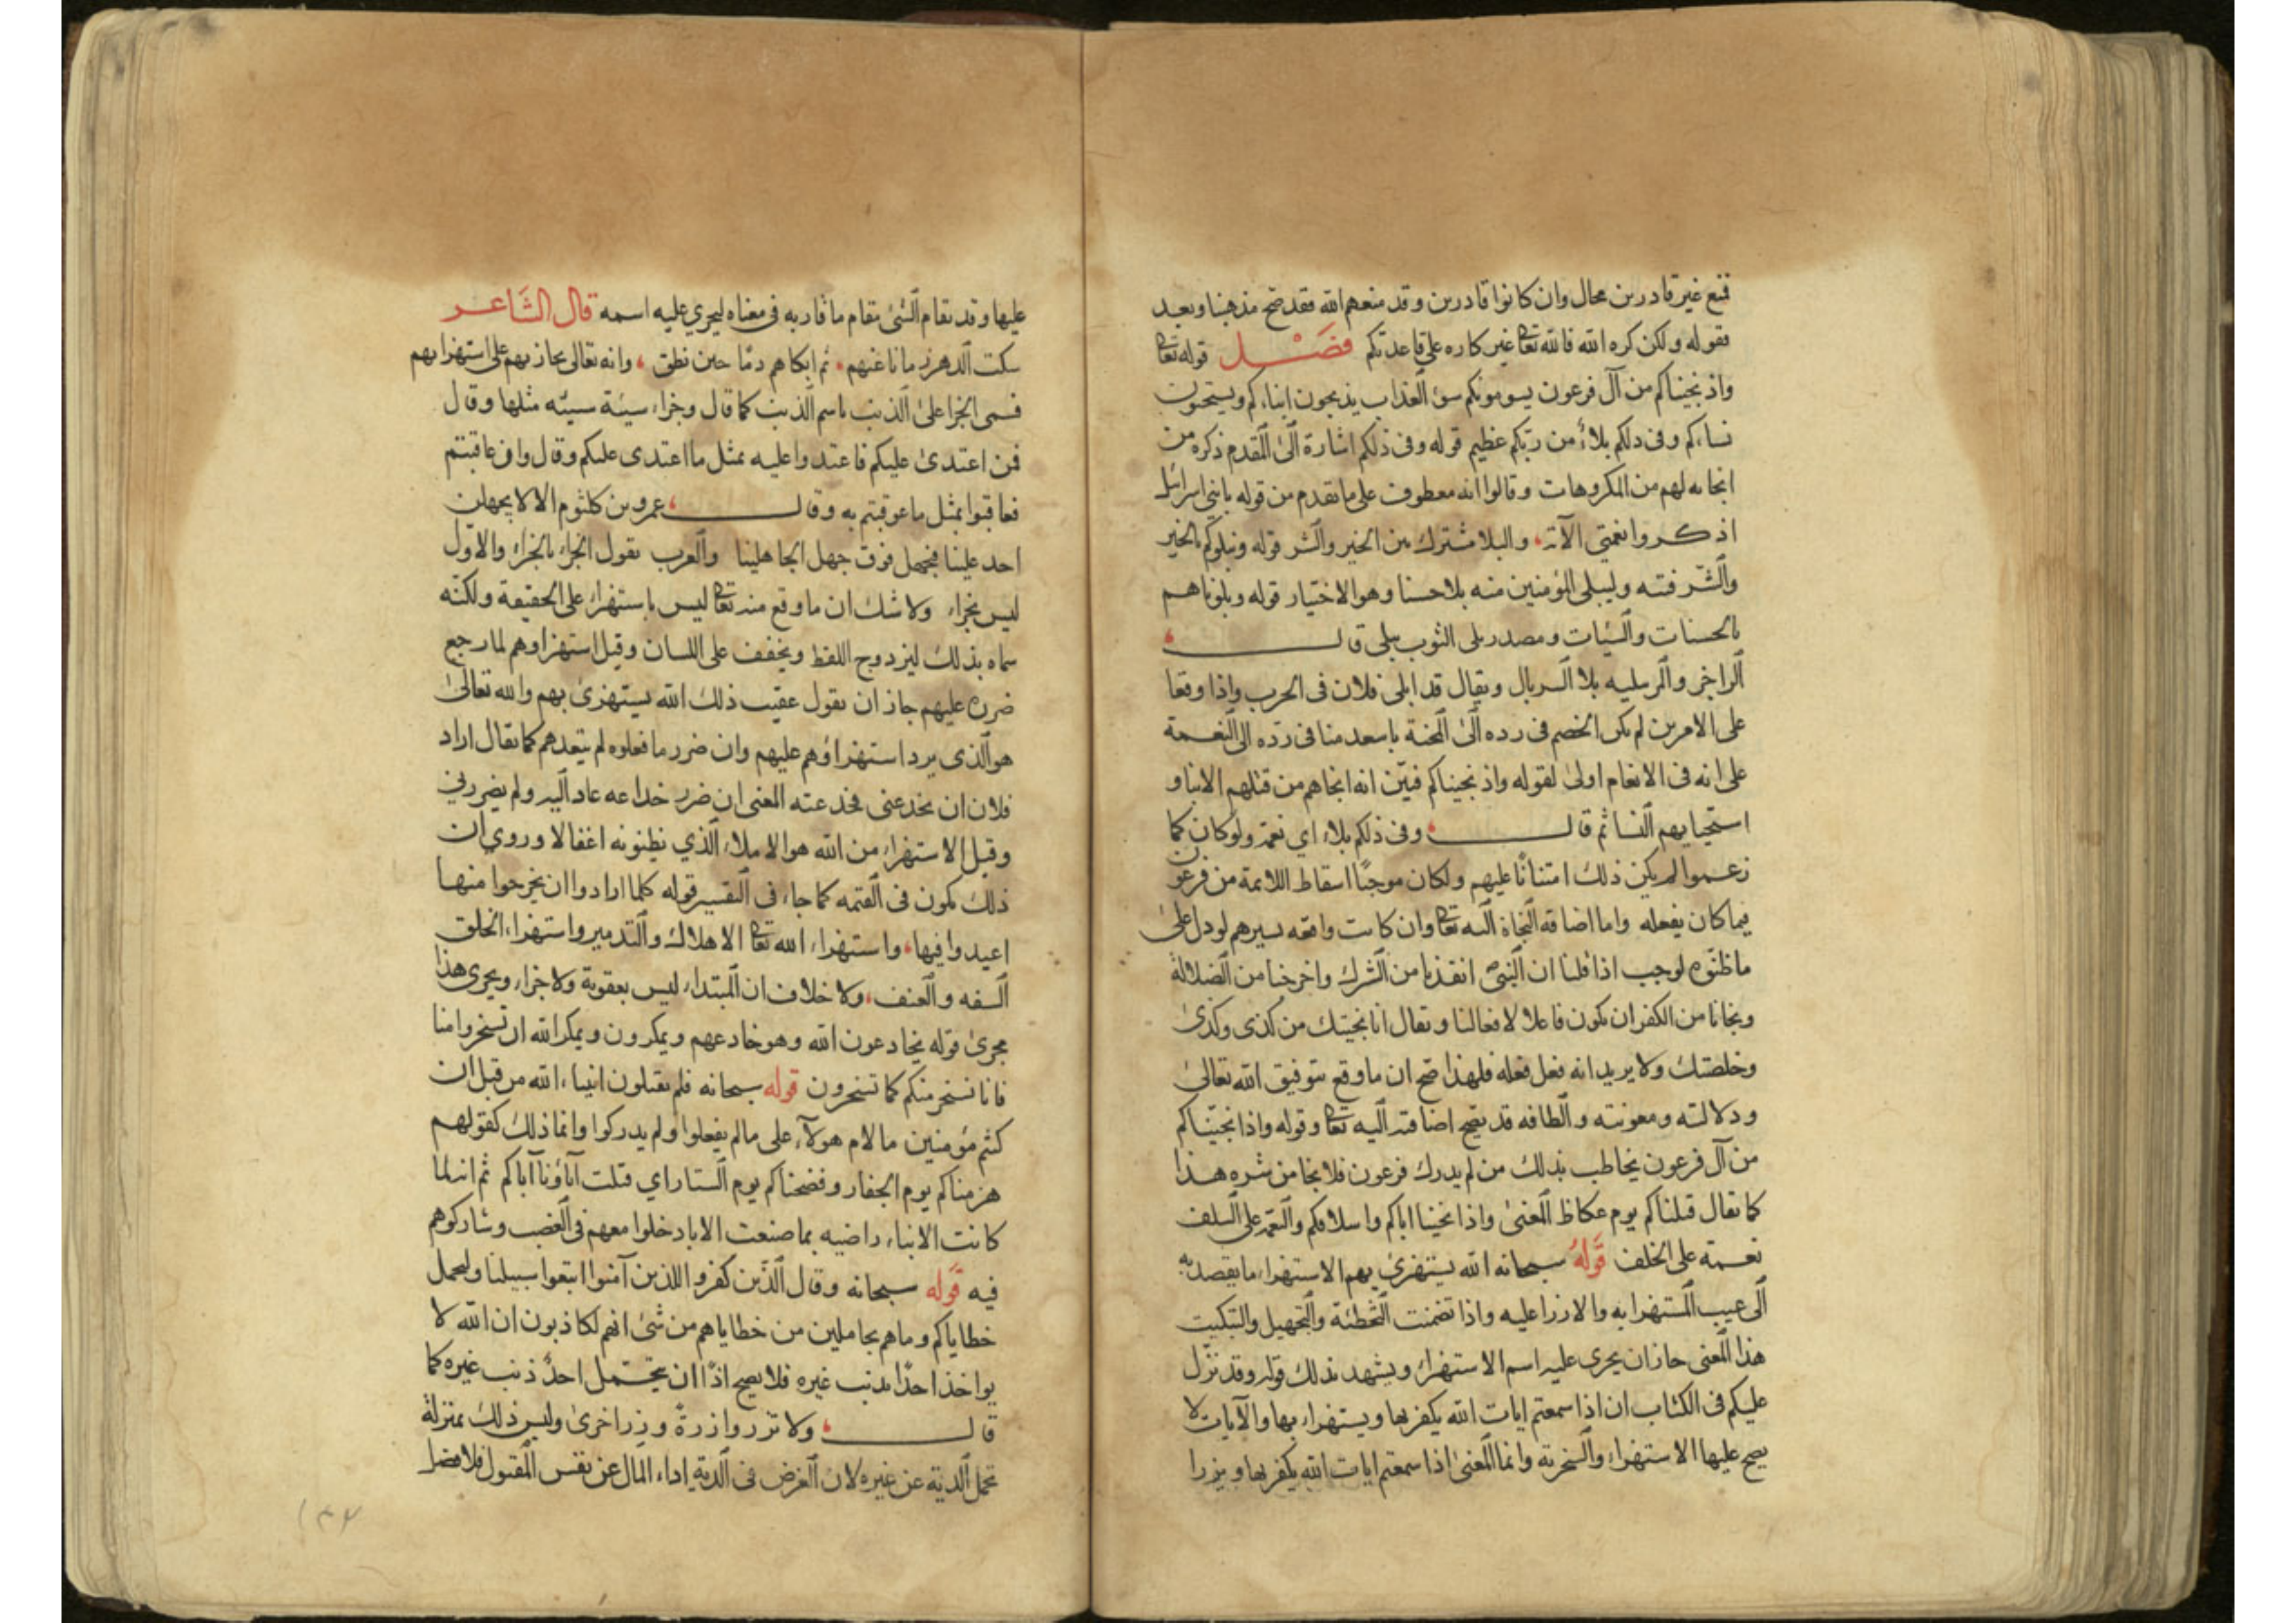 قنع غير قادرين محال وان كانوا قادرين وقد منعهم الله فقد صح مذهبنا وبعد
فقوله ولكن كره الله فالله تعا غير كاره على قاعدتكم فصل قوله تعا
واذ نجيناكم من آل فرعون يسومونكم سوء العذاب يذبحون ابناءكم ويستحيون
نساءكم وفى ذلكم بلاء من ربكم عظيم قوله وفى ذلكم اشارة الى المقدم ذكره من
انجائه لهم من المكروهات وقالوا انه معطوف على ما تقدم من قوله يا بنى اسرائيل
اذكروا نعمتى الآية والبلا مشترك بين الخير والشر قوله ونبلوكم بالخير
والشر فتنه وليبلى المؤمنين منه بلاء حسنا وهو الاختيار قوله وبلوناهم
بالحسنات والسيات ومصدر بلى الثوب يبلى قال
الراجز والمر يبليه بلا السربال ويقال قد ابلى فلان فى الحرب واذا وقعا
على الامرين لم يكن الخصم فى رده الى المحنة باسعد منا فى رده الى النعمة
على انه فى الانعام اولى لقوله واذ نجيناكم فبين انه انجاهم من قتلهم الابنا و
استحيايهم النسا ثم قال وفى ذلكم بلاء اي نعمة ولو كان كما
زعموا لم يكن ذلك امتنانا عليهم ولكان موجبا اسقاط اللائمة من فرعون
فيما كان يفعله واما اضافة النجاة اليه تعا وان كانت واقعه بسيرهم لو دل على
ما ظنوه لوجب اذا قلنا ان النبى انقذنا من الشرك واخرجنا من الضلالة
ونجانا من الكفر ان يكون فاعلا لافعالنا ويقال انا نجيتك من كذى وكذى
وخلصتك ولا يريد انه فعل فعله فلهذا صح ان ما وقع بتوفيق الله تعالى
ودلالته ومعونته والطافه قد يصح اضافته اليه تعا وقوله واذ انجيناكم
من آل فرعون يخاطب بذلك من لم يدرك فرعون فلا نجا من شره هذا
كما يقال قتلناكم يوم عكاظ المعنى واذا نجينا اباكم واسلافكم والنعمة على السلف
نعمة على الخلف قوله سبحانه الله يستهزئ بهم الاستهزاء ما يقصد به
الى عيب المستهزا به والازرا عليه واذا تضمنت التخطئة والتجهيل والتبكيت
هذا المعنى جاز ان يجرى عليه اسم الاستهزاء ويشهد بذلك قوله وقد نزل
عليكم فى الكتاب ان اذا سمعتم ايات الله يكفر بها ويستهزاء بها والآيات لا
يصح عليها الاستهزاء والسخرية وانما المعنى اذا سمعتم ايات الله يكفر بها ويزرا
عليها وقد يقام الشئ مقام ما قاربه فى معناه ليجري عليه اسمه قال الشاعر
سكت الدهر زمانا عنهم ثم ابكاهم دما حين نطق وانه تعالى يجازيهم على استهزايهم
فسمى الجزا على الذنب باسم الذنب كما قال وجزاء سيئة سيئه مثلها وقال
فمن اعتدى عليكم فاعتدوا عليه بمثل ما اعتدى عليكم وقال وان عاقبتم
فعاقبوا بمثل ما عوقبتم به وقال عمرو بن كلثوم الا لا يجهلن
احد علينا فنجهل فوق جهل الجاهلينا والعرب يقول الجزاء بالجزاء والاول
ليس بجزاء ولا شك ان ما وقع منه تعا ليس باستهزاء على الحقيقة ولكنه
سماه بذلك ليزدوج اللفظ ويخفف على اللسان وقيل استهزاوهم لما رجع
ضره عليهم جاز ان يقول عقيب ذلك الله يستهزئ بهم والله تعالى
هو الذى يرد استهزاؤهم عليهم وان ضرر ما فعلوه لم يتعدهم كما يقال اراد
فلان ان يخدعنى فخدعته المعنى ان ضرر خداعه عاد اليه ولم يضررنى
وقيل الاستهزاء من الله هو الاملاء الذي يظنونه اغفالا وروي ان
ذلك يكون فى القيمه كما جاء فى التفسير قوله كلما ارادوا ان يخرجوا منها
اعيدوا فيها واستهزاء الله تعا الاهلاك والتدمير واستهزاء الخلق
السفه والعنف ولا خلاف ان المبتداء ليس بعقوبة ولا جزاء ويجرى هذا
مجرى قوله يخادعون الله وهو خادعهم ويمكرون ويمكر الله ان تسخروا منا
فانا نسخر منكم كما تسخرون قوله سبحانه فلم يقتلون انبياء الله من قبل ان
كنتم مؤمنين ما لام هولاء على ما لم يفعلوا ولم يدركوا وانما ذلك كقولهم
هزمناكم يوم الجفار وفضحناكم يوم الستار اي قتلت آباؤنا آباكم ثم انه لما
كانت الابناء راضيه بما صنعت الابا دخلوا معهم فى الغضب وشاركوهم
فيه قوله سبحانه وقال الذين كفروا للذين آمنوا اتبعوا سبيلنا ولنحمل
خطاياكم وما هم بحاملين من خطاياهم من شئ انهم لكاذبون ان الله لا
يواخذ احدا بذنب غيره فلا يصح اذا ان يحتمل احد ذنب غيره كما
قال ولا تزر وازرة وزر اخرى وليس ذلك بمنزلة
تحمل الدية عن غيره لان الغرض فى الدية اداء المال عن نفس المقتول فلا فضل